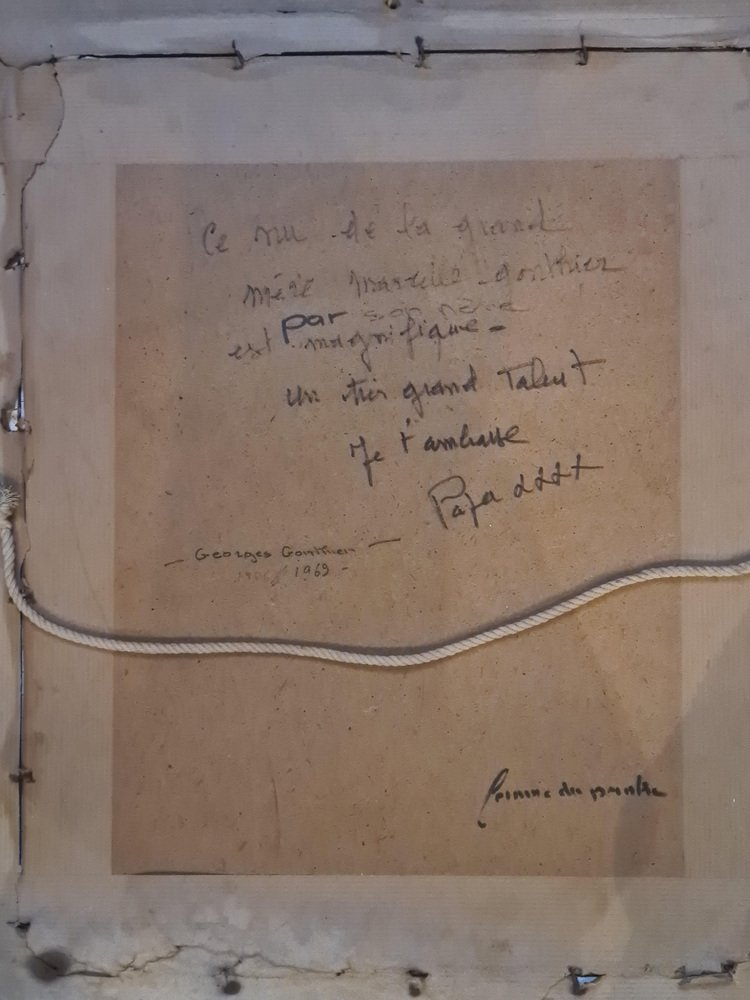 Ce nu de la grand
mère Marcelle Gonthier
par son père
est magnifique -
un très grand Talent
Je t'ambrasse
Papa
— Georges Gonthier —
1969 -
Femme du peintre